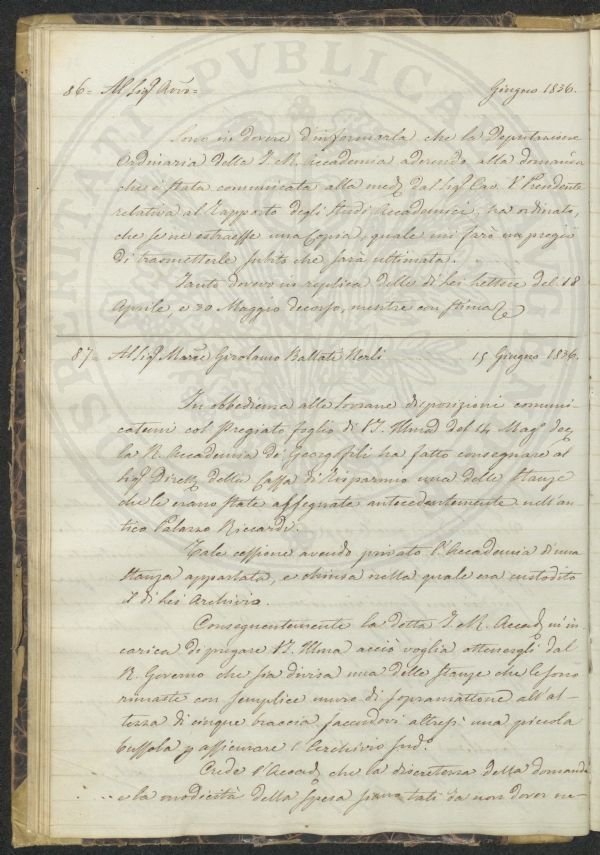 86= Al Sig.r Avv.o= Giugno 1836.
Sono in dovere d'informarla che la Deputazione
Ordinaria della I. e R. Accademia aderendo alla domanda
che è stata comunicata alla med.a dal Sig.r Cav. V. Presidente
relativa al Rapporto degli Studi Accademici, ha ordinato,
che se ne estraesse una Copia, quale mi farò un pregio
di trasmetterle subito che sarà ultimata.
Tanto devo in replica delle di Lei Lettere del 18
Aprile, e 30 Maggio decorso, mentre con stima
87= Al Sig.r March.e Girolamo Ballati Nerli 15 Giugno 1836.
In obbedienza alle Sovrane disposizioni comuni-
catemi col Pregiato foglio di V.S. Illma del 14 Mag.o
la R. Accademia dei Georgofili ha fatto consegnare al
Sig.r Dirett.e della Cassa di Risparmio una delle stanze
che le erano state assegnate antecedentemente nell'an-
tico Palazzo Riccardi.
Tale cessione avendo privato l'Accademia d'una
stanza appartata, e chiusa nella quale era custodito
il di Lei Archivio.
Conseguentemente la detta I. e R. Accad.a m'in-
carica di pregare V.S. Illma acciò voglia ottenergli dal
R. Governo che sia divisa una delle stanze che le sono
rimaste con semplice muro di soprammattone all'al-
tezza di cinque braccia facendovi altresì una piccola
bussola p assicurare l'Archivio sud.o
Crede l'Accad.a che la discretezza della domanda
e la modicità della spesa siano tali da non dover me-